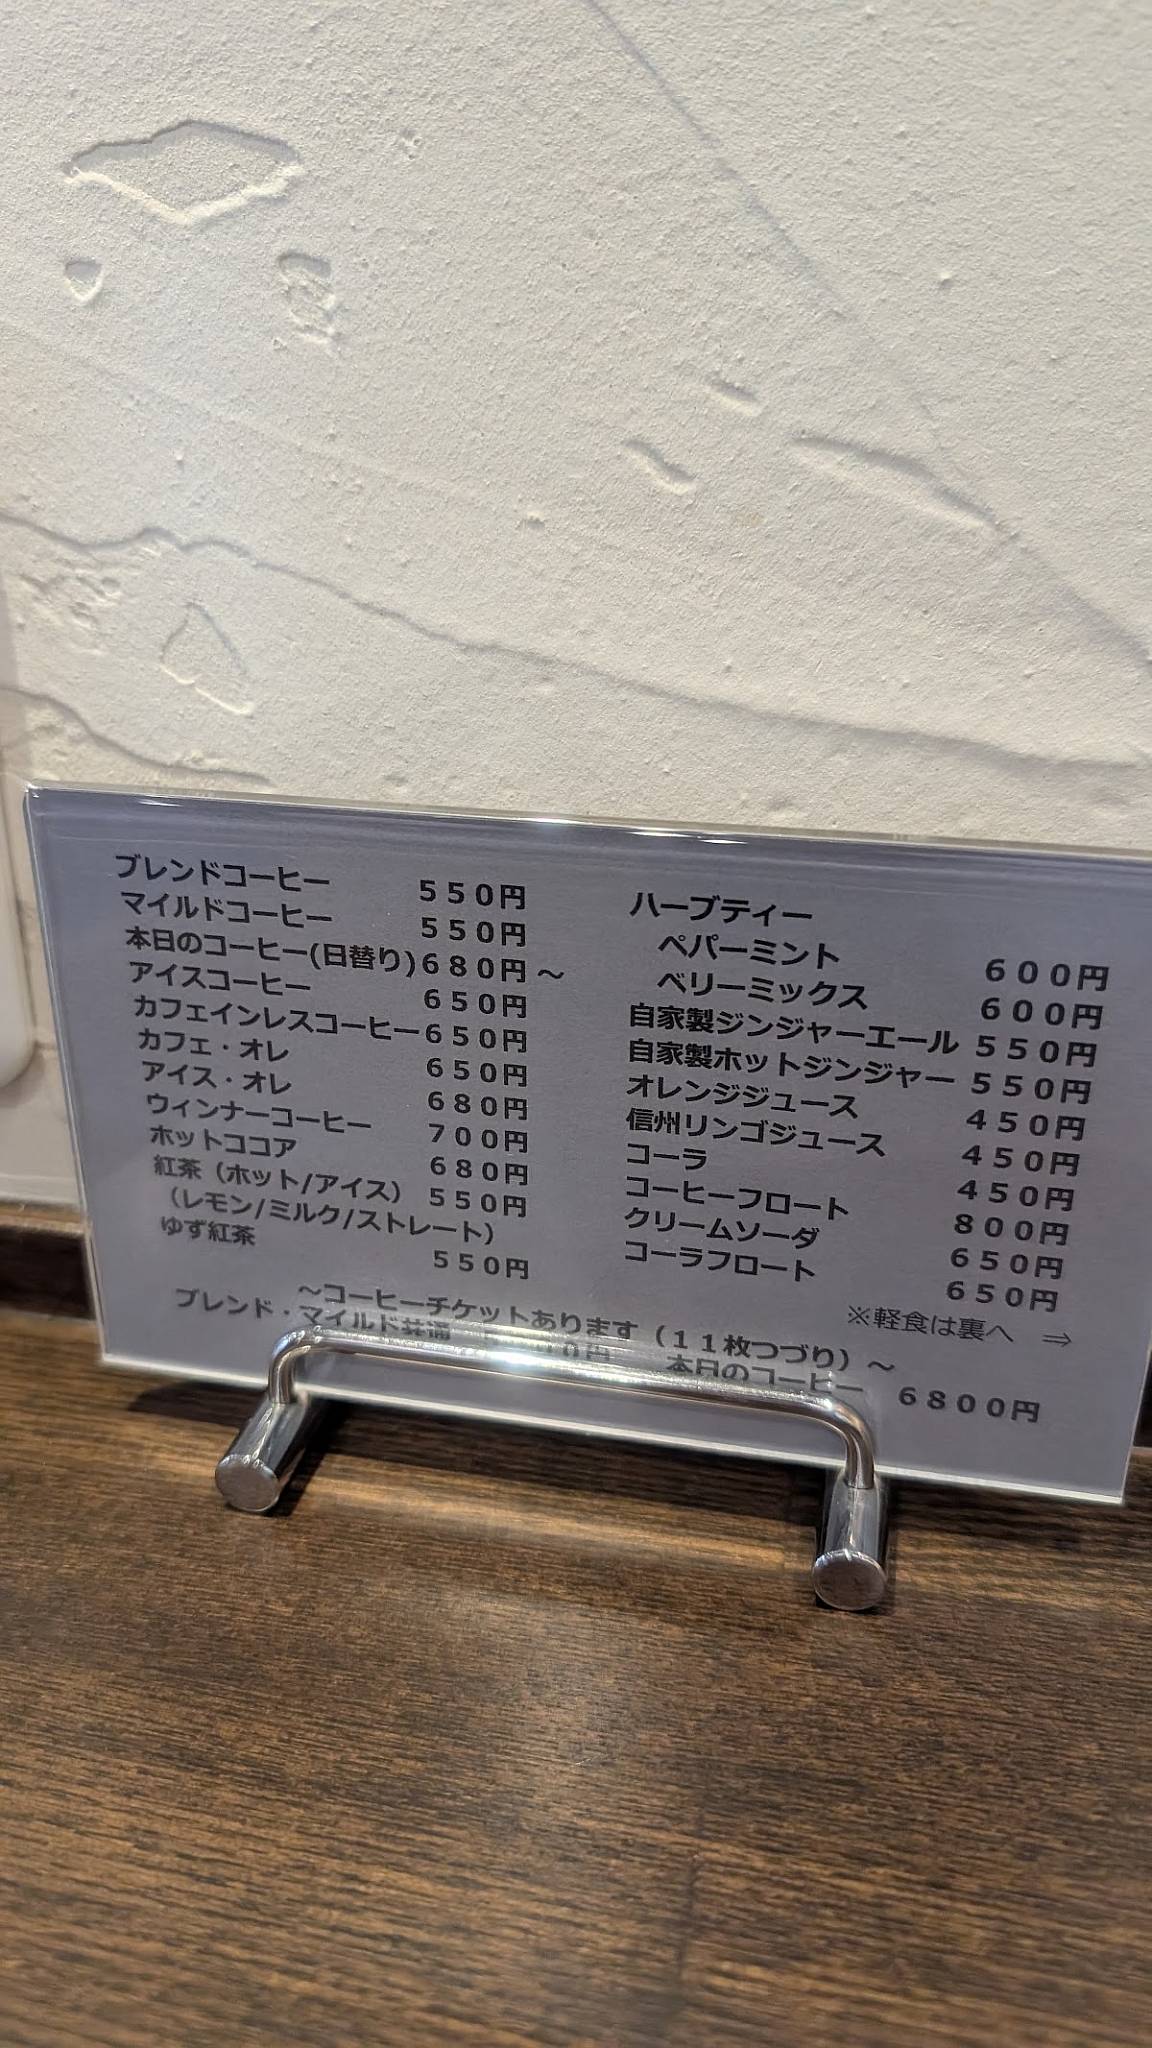 ブレンドコーヒー 550円
マイルドコーヒー 550円
本日のコーヒー(日替り) 680円～
アイスコーヒー 650円
カフェインレスコーヒー 650円
カフェ・オレ 650円
アイス・オレ 680円
ウィンナーコーヒー 700円
ホットココア 680円
紅茶（ホット/アイス） 550円
（レモン/ミルク/ストレート）
ゆず紅茶 550円
ハーブティー
ペパーミント 600円
ベリーミックス 600円
自家製ジンジャーエール 550円
自家製ホットジンジャー 550円
オレンジジュース 450円
信州リンゴジュース 450円
コーラ 450円
コーヒーフロート 800円
クリームソーダ 650円
コーラフロート 650円
※軽食は裏へ ⇒
～コーヒーチケットあります（１１枚つづり）～
ブレンド・マイルド共通 本日のコーヒー 6800円